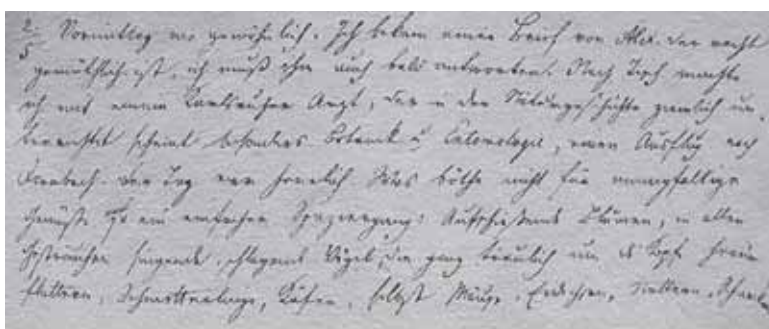 2. Vormittag wie gewöhnlich. Ich bekam einen Brief von Alex. der recht
5 gemüthlich ist, ich muß ihm auch bald antworten. Nach Tisch machte
ich mit einem Karlsruher Arzt, der in der Naturgeschichte ziemlich un-
terrichtet scheint besonders Botanik u. Entomologie, einen Ausflug nach
. Der Tag war herrlich. Was böthe nicht für mannigfaltige
Genüsse ein einfacher Spaziergang! Aufschießende Blumen, in allen
Gesträuchen singende, schlagende Vögel, die ganz traulich um d. Kopf herum
flattern, Schmetterlinge, Käfer, selbst Mäuse, Eidechsen, Nattern,